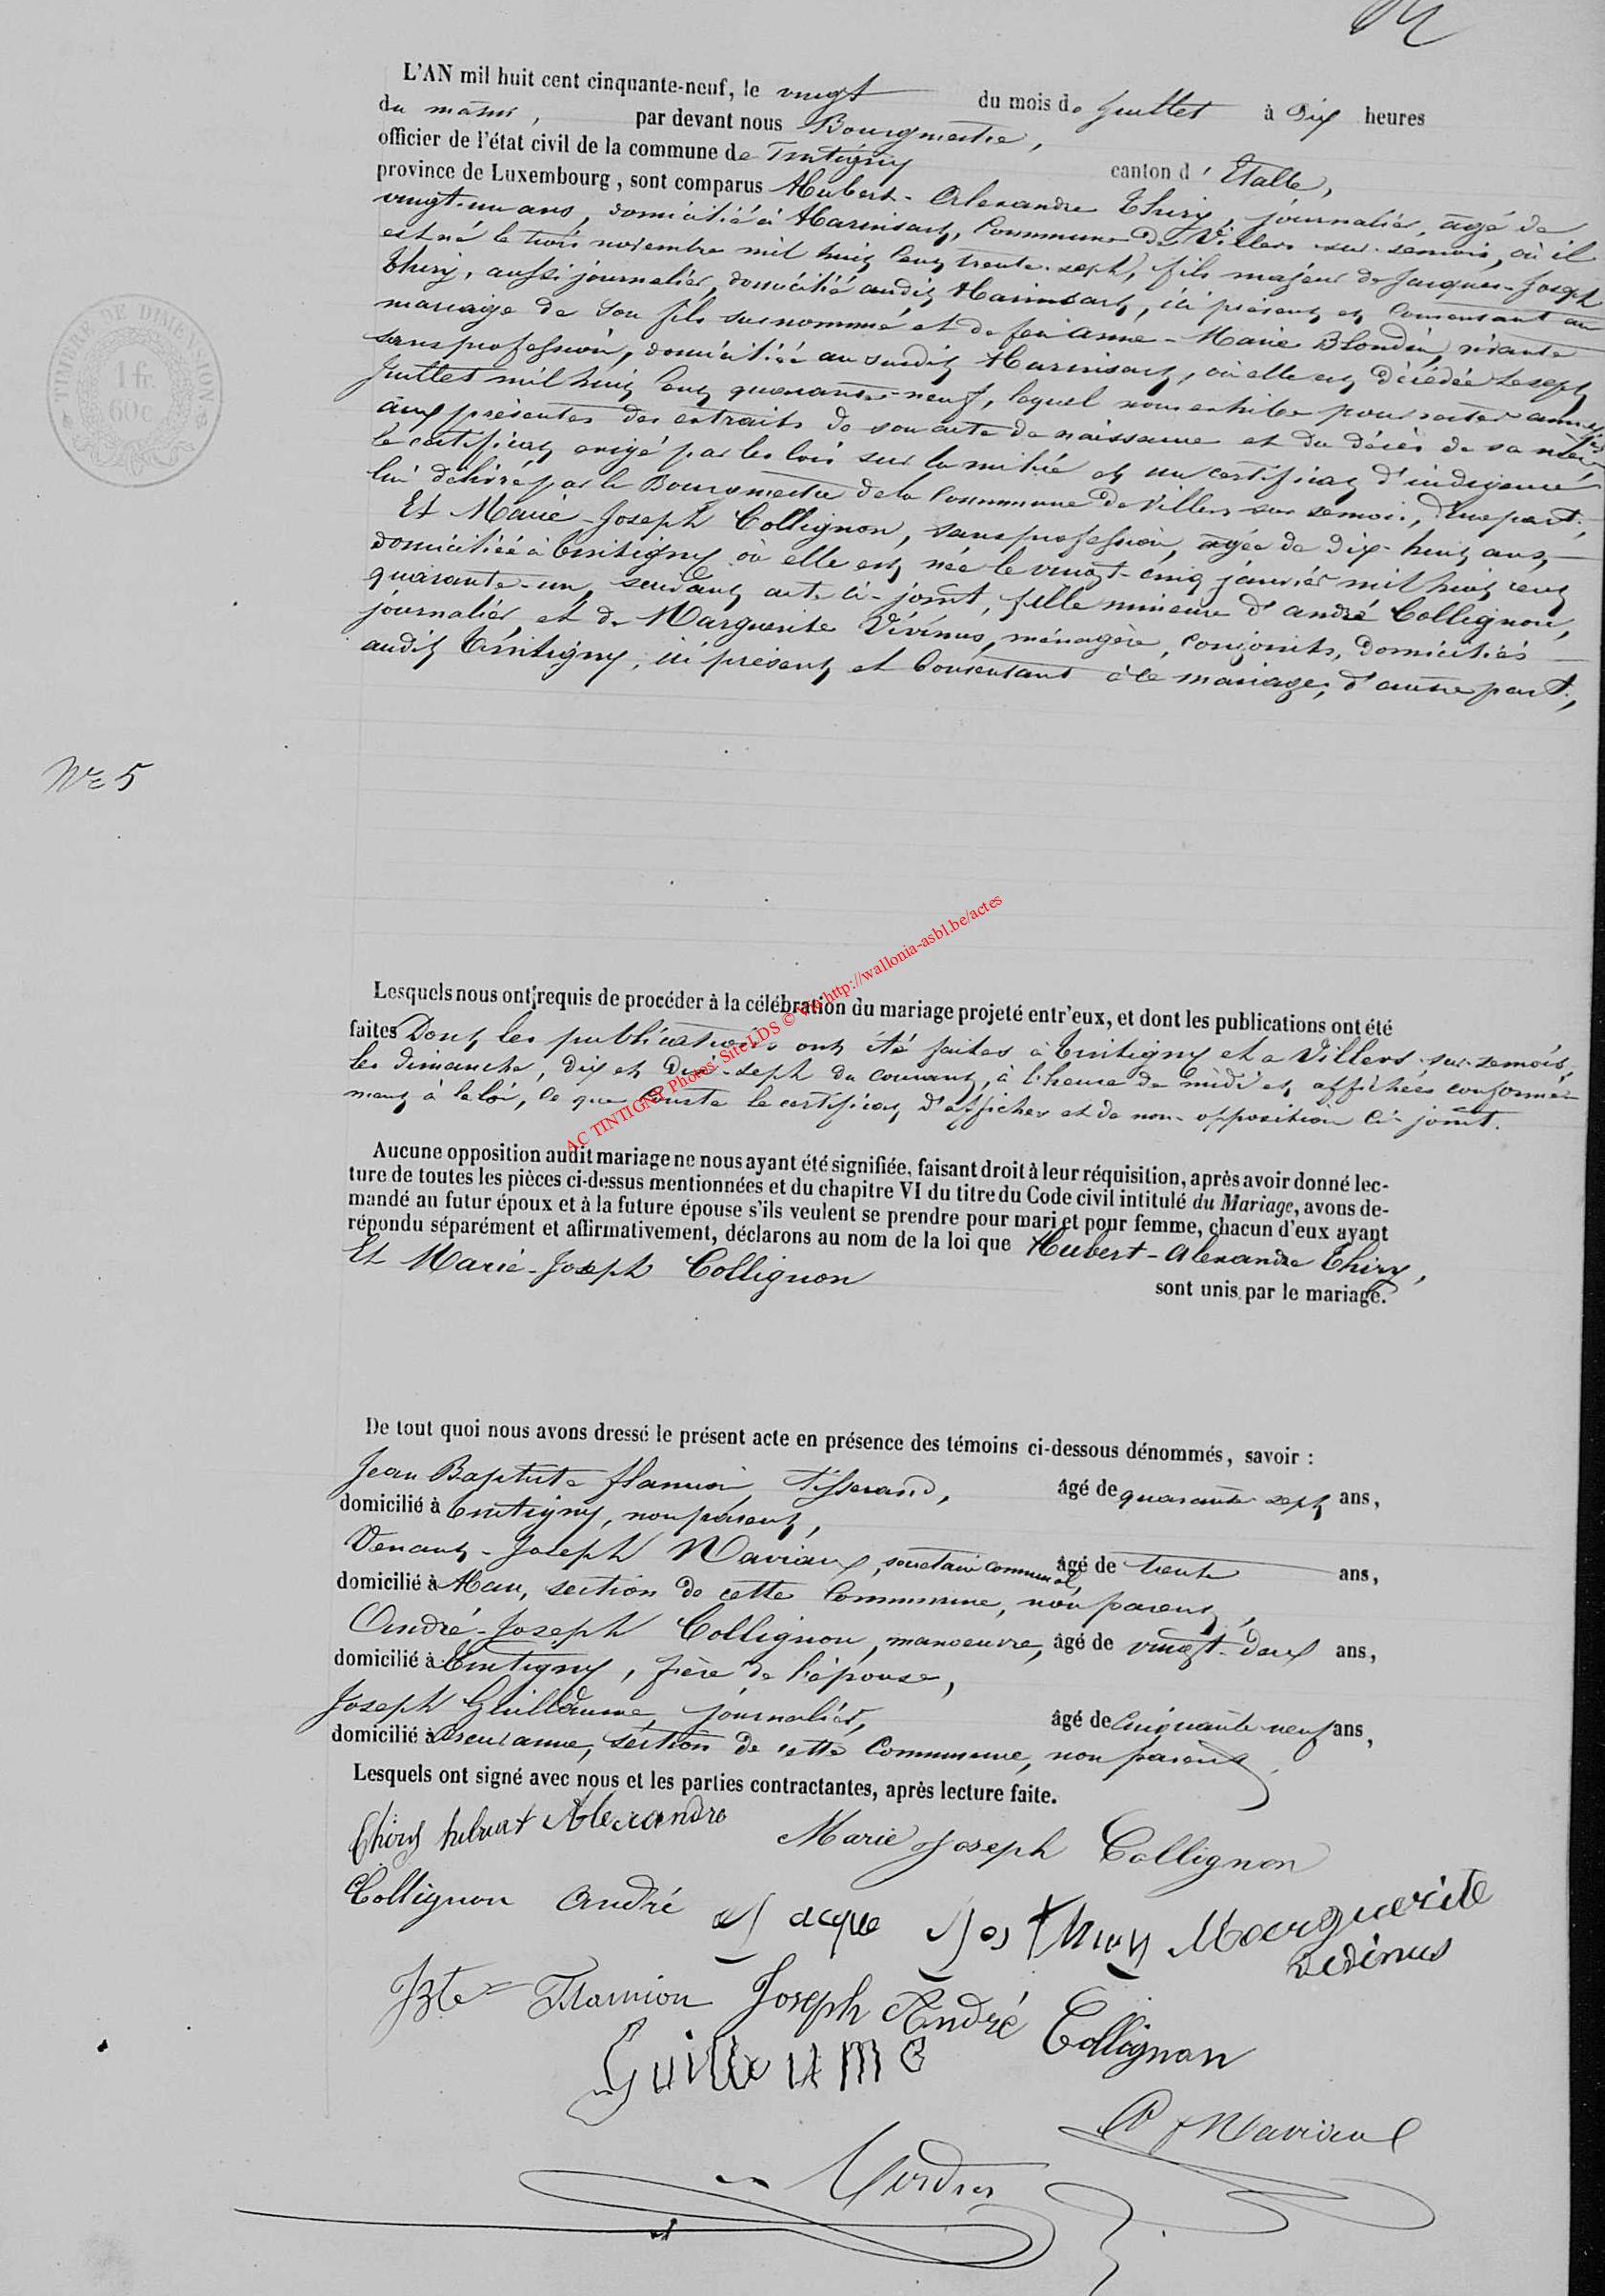 L'AN mil huit cent cinquante-neuf, le vingt du mois de Juillet à Dix heures
du matin, par devant nous Bourgmestre,
officier de l'état civil de la commune de Tintigny canton d'Etalle,
province de Luxembourg, sont comparus Hubert-Alexandre Thiry, journalier, agé de
vingt-un ans, domicilié à Harinsart, Commune de Villers-sur-semois, où il
est né le trois novembre mil huit Cent trente-sept, fils majeur de Jacques-Joseph
Thiry, aussi journalier, domicilié audit Harinsart, ici présent et Consentant au
mariage de son fils susnommé et de feu Anne-Marie Blondin, vivante
sans profession, domiciliée au susdit Harinsart, où elle est décédée le sept
Juillet mil huit Cent quarante-neuf, lequel nous exhibe pour rester annexés
aux présentes des extraits de son acte de naissance et du décès de sa mère
le certificat exigé par les lois sur la milice et un certificat d'indigence
lui délivré par le Bourgmestre de la Commune de Villers sur semois, d'une part;
Et Marie-Joseph Collignon, sans profession, agée de dix-huit ans,
domiciliée à Tintigny où elle est née le vingt-cinq janvier mil huit cent
quarante-un, suivant acte ci-joint, fille mineure d'andré Collignon,
journalier et de Marguerite Vivinus, ménagère, conjoints, domiciliés
audit Tintigny, ici présent et Consentant à ce mariage; d'autre part;
N° 5
Lesquels nous ont requis de procéder à la célébration du mariage projeté entr'eux, et dont les publications ont été
faites Dont les publications ont été faites à Tintigny et a Villers-sur-semois,
les dimanche, dix et dix-sept du courant, à l'heure de midi et affichées conformé-
ment à la loi, ce que Conste le certificat d'affiches et de non-opposition ci-joint.
Aucune opposition audit mariage ne nous ayant été signifiée, faisant droit à leur réquisition, après avoir donné lec-
ture de toutes les pièces ci-dessus mentionnées et du chapitre VI du titre du Code civil intitulé du Mariage, avons de-
mandé au futur époux et à la future épouse s'ils veulent se prendre pour mari et pour femme, chacun d'eux ayant
répondu séparément et affirmativement, déclarons au nom de la loi que Hubert-Alexandre Thiry,
Et Marie-Joseph Collignon sont unis par le mariage.
De tout quoi nous avons dressé le présent acte en présence des témoins ci-dessous dénommés, savoir :
Jean Baptiste flamion Tisserand, âgé de quarante sept ans,
domicilié à Tintigny, non parent,
Venant-Joseph Naviaux, secrétaire communal, âgé de trente ans,
domicilié à Han, section de cette Commune, non parent,
André-Joseph Collignon, manoeuvre, âgé de vingt-deux ans,
domicilié à Tintigny, frère de l'épouse,
Joseph Guillaume, journalier, âgé de Cinquante neuf ans,
domicilié à Breuvanne, section de cette Commune, non parent
Lesquels ont signé avec nous et les parties contractantes, après lecture faite.
Thiry hubert Alexandre Marie Joseph Collignon
Collignon André Jacque Jos thiry Marguerite
vivinus
JBte Flamion Joseph André Collignon
Guillaume
Naviaux
TIMBRE DE DIMENSION
1 fr.
60c
AC TINTIGNY Photos: Site LDS © via http://wallonia-asbl.be/actes